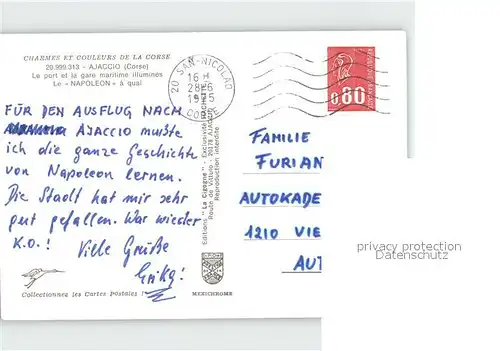 CHARMES ET COULEURS DE LA CORSE
20.999.313 - AJACCIO (Corse)
Le port et la gare maritime illuminés
Le "NAPOLEON" à quai
20 SAN-NICOLAO
16 H
28-6
1975
CORSE
0,80
FÜR DEN AUSFLUG NACH
AJACCIO mußte
ich die ganze Geschichte
von Napoleon lernen.
Die Stadt hat mir sehr
gut gefallen. War wieder
K.O.! Viele Grüße
Erika!
Collectionnez les Cartes Postales !
MEXICHROME
Editions "La Cigogne" - Exclusivité
Route de
Reproduction interdite
FAMILIE
FURIAN
AUTOKADE
1210 VIE
AUT
privacy protection
Datenschutz